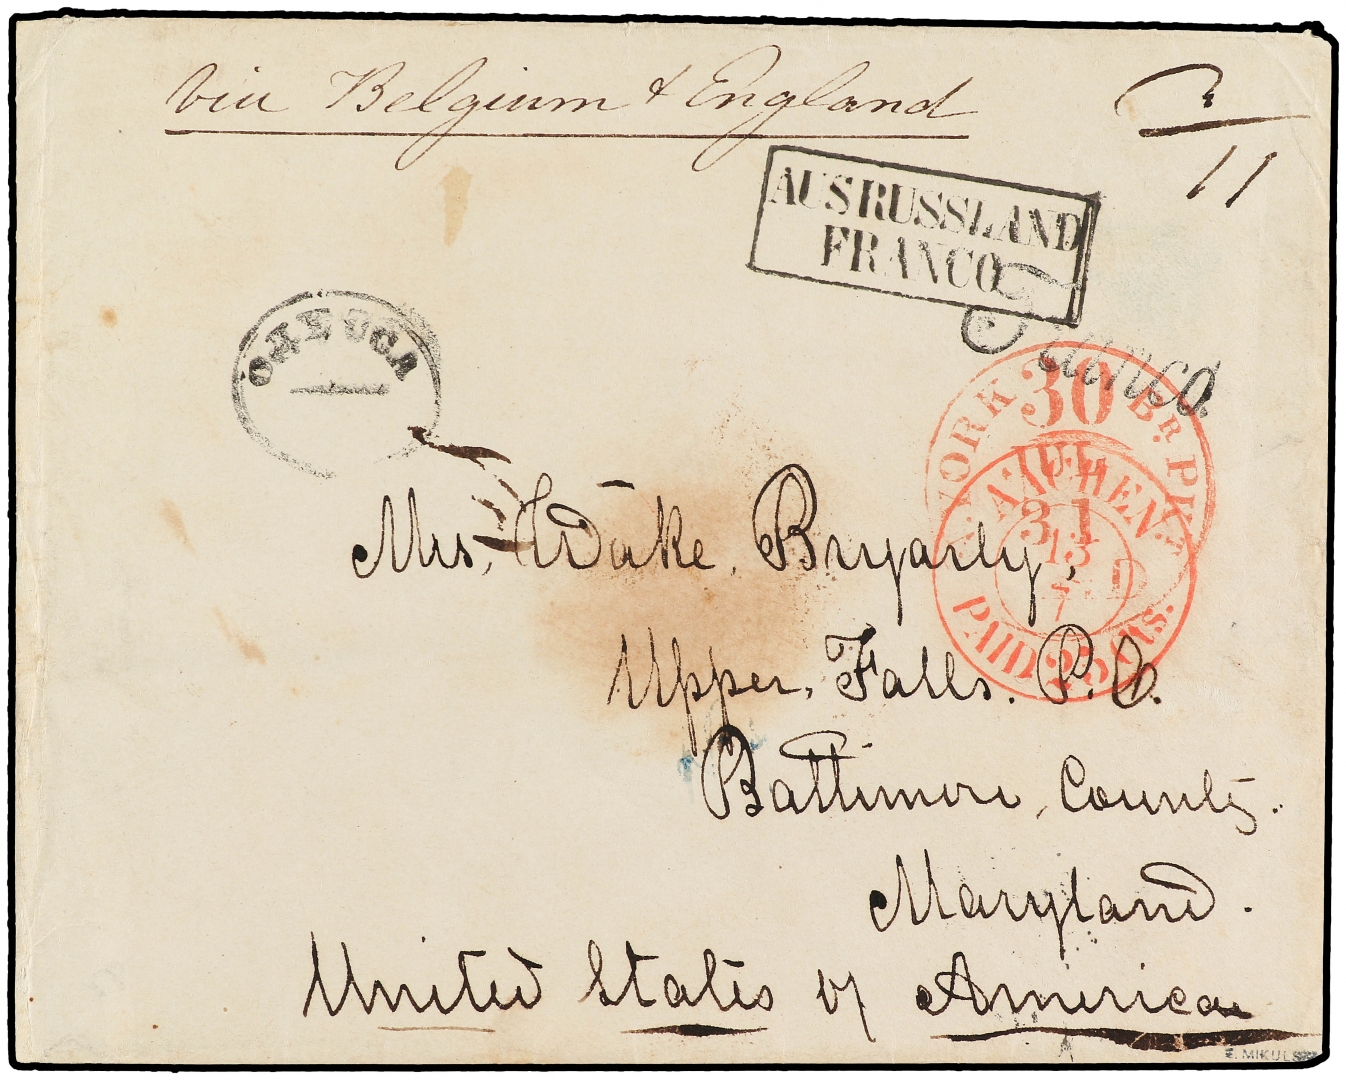 via Belgium & England
11
AUS RUSSLAND
FRANCO
Franco.
ОДЕССА
N. YORK 30 BR. PKT.
JUL
31
AACHEN
13
7
PAID 25 Cts.
Mrs. Wake Bryarly,
Upper. Falls. P. O.
Baltimore, County.
Maryland.
United States of America
E. MIKULSKI